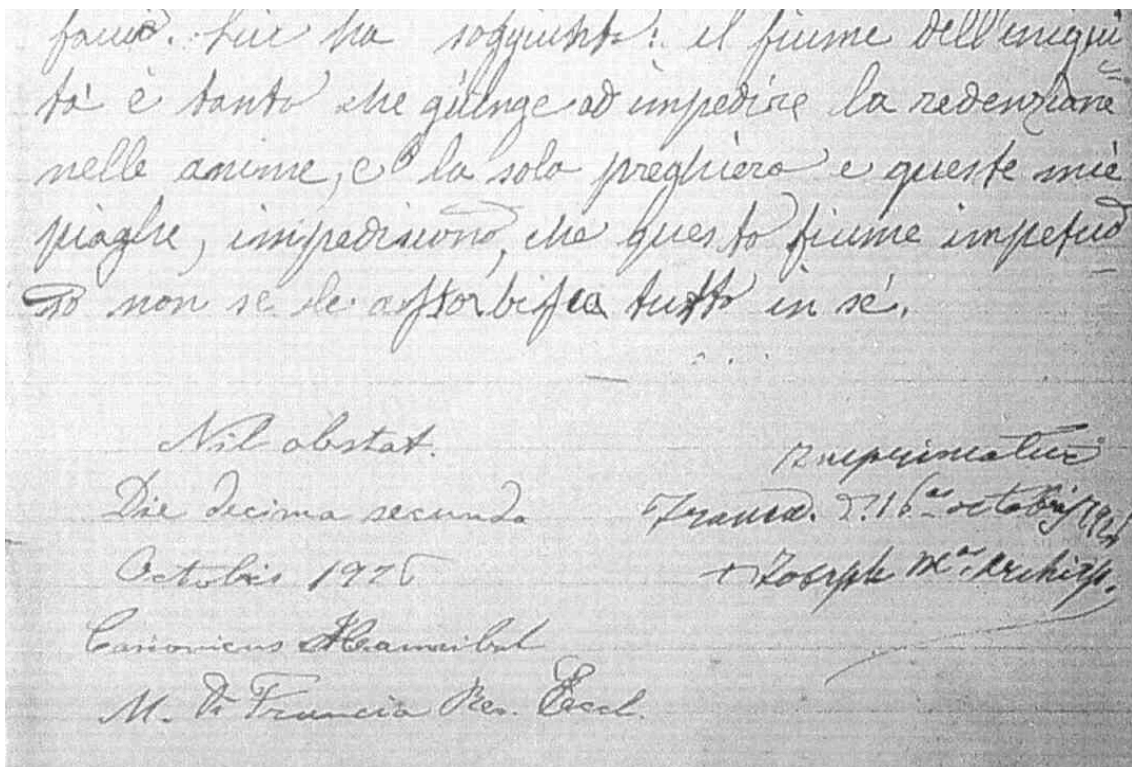 ha soggiunto: il fiume dell'iniqui=
tà è tanto che giunge ad impedire la redenzione
nelle anime, e la sola preghiera e queste mie
piaghe, impediscono, che questo fiume impetuo=
so non se le assorbisca tutto in sè.
Nil obstat.
Die decima secunda
Octobris 1926
Canonicus Hannibal
M. Di Francia Rev. Eccl.
Imprimatur
16 octobris 1926
+ Joseph M. Archiep.